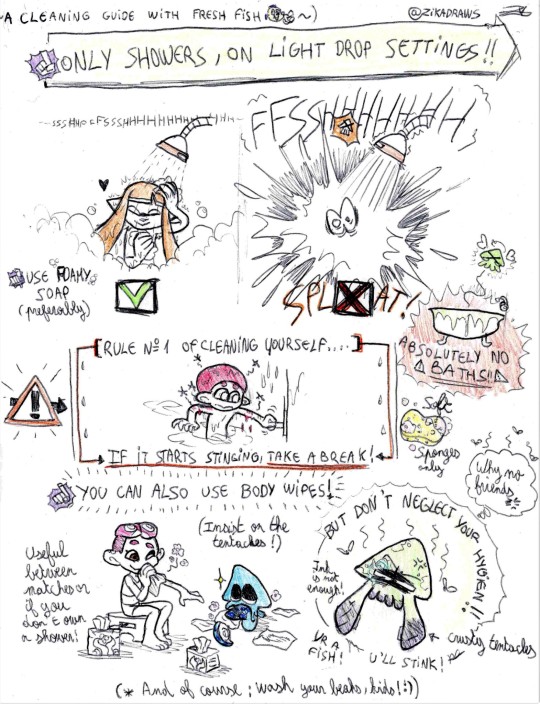 A CLEANING GUIDE WITH FRESH FISH ~)
@ZIKADRAWS
ONLY SHOWERS, ON LIGHT DROP SETTINGS!!
FFSSHHHHHHHH
USE FOAMY
SOAP
(preferably)
SPLAT!
ABSOLUTELY NO
BATHS!!
RULE Nº1 OF CLEANING YOURSELF....
IF IT STARTS STINGING, TAKE A BREAK!
Soft
Sponges
only
YOU CAN ALSO USE BODY WIPES!
Why no
friends
(Insist on the
tentacles!)
Useful
between
matches or
if you
don't own
a shower!
BUT DON'T NEGLECT YOUR HYGIEN!!
Ink
is not
enough!
UR A
FISH!
U'LL STINK!
crusty tentacles
(* And of course; wash your beaks, kids!:))